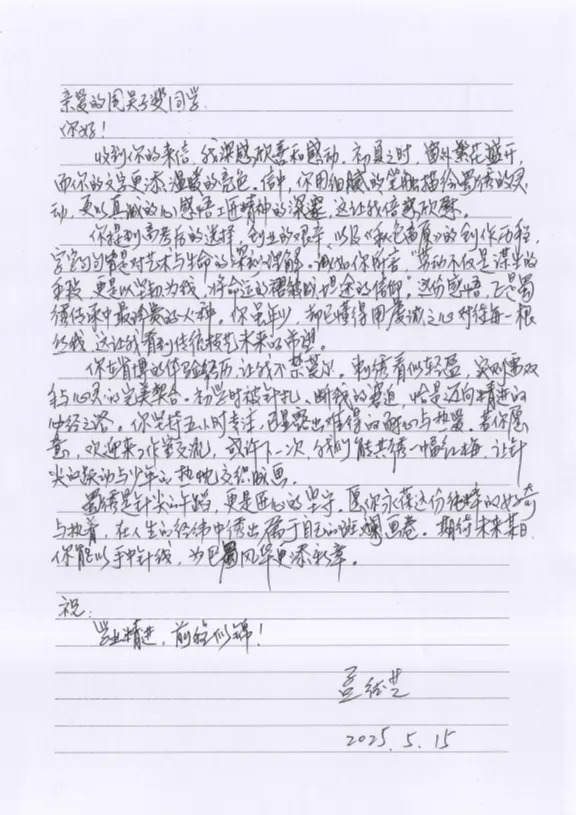 亲爱的周吴子雯同学
你好！
收到你的来信，我深感欣喜和感动。初夏之时，窗外繁花盛开，
而你的文字更添温暖的亮色。信中，你用细腻的笔触描绘蜀绣的灵
动，更以真诚的心感悟工匠精神的深邃，这让我倍感欣慰。
你提到高考后的选择、创业的艰辛，以及《秋色斋》的创作历程，
字字句句皆是对艺术与生命的深刻理解。诚如你所言"劳动不仅是谋生的
手段，更是以坚韧为线，将命运的褶皱绣成锦的信仰"。这份感悟，正是蜀
绣传承中最珍贵的火种。你虽年少，却已懂得用虔诚之心对待每一根
丝线，这让我看到传统技艺未来的希望。
你在省博的体验经历，让我不禁莞尔。刺绣看似轻盈，实则需双
手与心灵的完美契合。初学时被针扎、断线的窘迫，恰是迈向精进的
必经之路。你坚持五小时专注，已显露出难得的耐心与热爱。若你愿
意，欢迎来工作室交流，或许下一次，我们能共绣一幅红梅，让针
尖的跃动与少年的热忱交织成画。
蜀绣是针尖的舞蹈，更是匠心的坚守。愿你永葆这份纯粹的好奇
与执着，在人生的经纬中绣出属于自己的斑斓画卷。期待未来某日，
你能以手中针线，为巴蜀风华更添新章。
祝：
学业精进，前程似锦！
孟德芝
2025.5.15